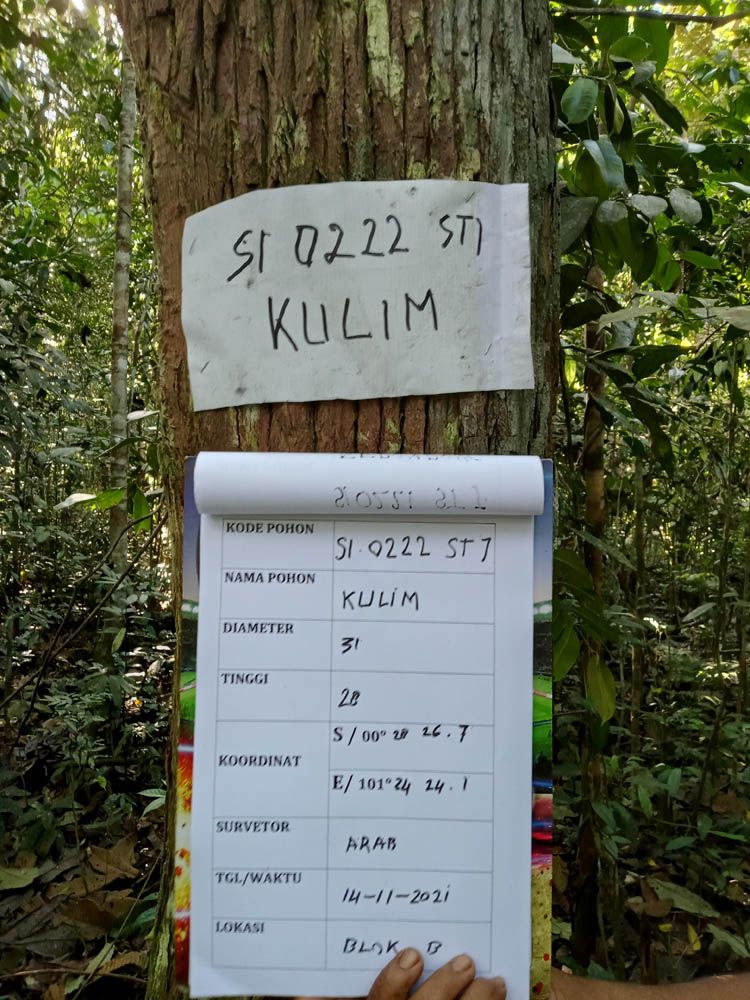 SI 0222 ST7
KULIM
KODE POHON SI.0222 ST7
NAMA POHON KULIM
DIAMETER 31
TINGGI 28
KOORDINAT
S/00° 28 26.7
E/101° 24 24.1
SURVETOR ARAB
TGL/WAKTU 14-11-2021
LOKASI BLOK B